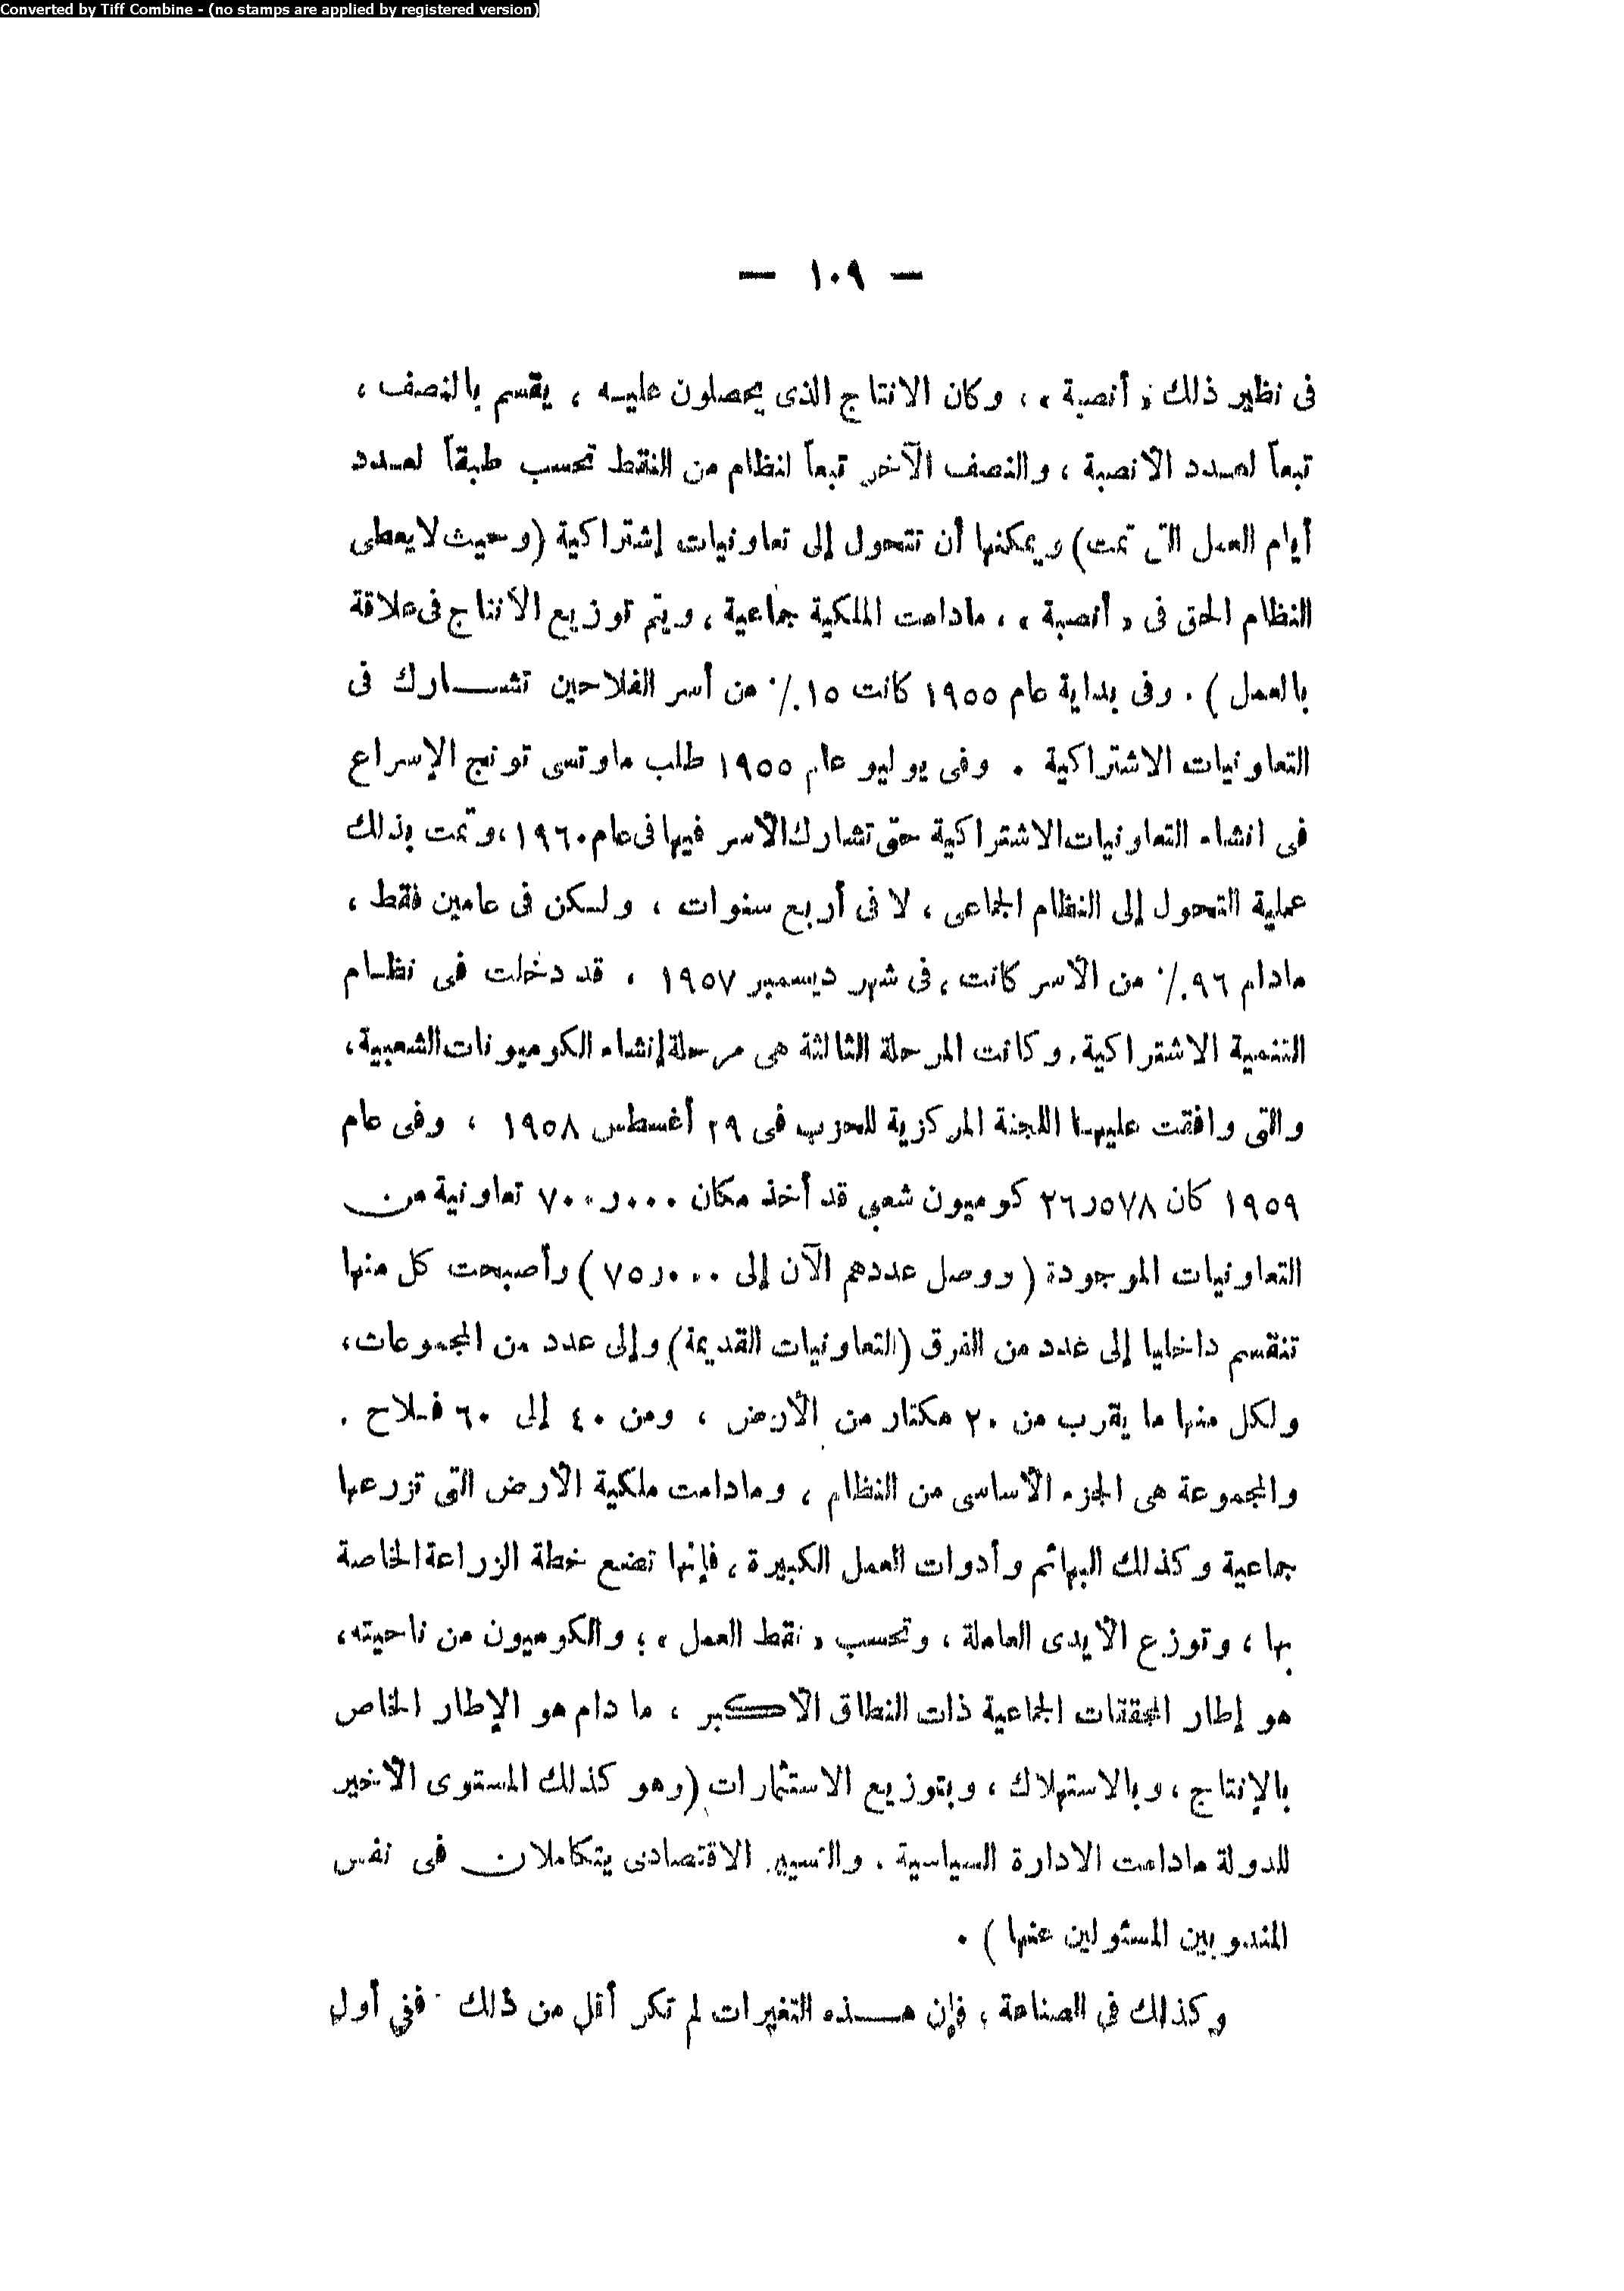 Converted by Tiff Combine - (no stamps are applied by registered version)
— ١٠٩ —
فى نظير ذلك « أنصبة » ، وكان الانتاج الذى يحصلون عليـه ، يقسم بالنصف ،
تبعاً لعـدد الأنصبة ، والنصف الآخر تبعاً لنظام من النقط تحسب طبقاً لعـدد
أيام العمل التى تمت) ويمكنها أن تتحول إلى تعاونيات إشتراكية (وحيث لا يعطى
النظام الحق فى « أنصبة » ، مادامت الملكية جماعية ، ويتم توزيع الأنتاج فى علاقة
بالعمل ) . وفى بداية عام ١٩٥٥ كانت ١٥٪ من أسر الفلاحين تشـــارك فى
التعاونيات الاشتراكية . وفى يوليو عام ١٩٥٥ طلب ماوتسى تونج الإسراع
فى انشاء التعاونيات الاشتراكية حتى تشارك الأسر فيها فى عام ١٩٦٠ ، وتمت بذلك
عملية التحول إلى النظام الجماعى ، لا فى أربع سنوات ، ولـكن فى عامين فقط ،
مادام ٩٦٪ من الأسر كانت ، فى شهر ديسمبر ١٩٥٧ ، قد دخلت فى نظـام
التنمية الاشتراكية. وكانت المرحلة الثالثة هى مرحلة إنشاء الكوميونات الشعبية ،
والتى وافقت عليهـا اللجنة المركزية للحزب فى ٢٩ أغسطس ١٩٥٨ ، وفى عام
١٩٥٩ كان ٢٦ر٥٧٨ كوميون شعبى قد أخذ مكان ٧٠٠ر٠٠٠ تعاونية من
التعاونيات الموجودة ( ووصل عددهم الآن إلى ٧٥ر٠٠٠ ) وأصبحت كل منها
تنقسم داخليا إلى عدد من الفرق (التعاونيات القديمة) وإلى عدد من المجموعات ،
ولكل منها ما يقرب من ٢٠ هكتار من الأرض ، ومن ٤٠ إلى ٦٠ فـلاح .
والمجموعة هى الجزء الأساسى من النظام ، ومادامت ملكية الأرض التى تزرعها
جماعية وكذلك البهائم وأدوات العمل الكبيرة ، فإنها تضع خطة الزراعة الخاصة
بها ، وتوزع الأيدى العاملة ، وتحسب « نقط العمل » ؛ والكوميون من ناحيته ،
هو إطار المحققات الجماعية ذات النطاق الأكبر ، ما دام هو الإطار الخاص
بالإنتاج ، وبالاستهلاك ، وبتوزيع الاستثمارات (وهو كذلك المستوى الأخير
للدولة مادامت الادارة السياسية . والتسيير الاقتصادى يتكاملان فى نفس
المندوبين المسئولين عنها ) .
وكذلك فى الصناعة ، فإن هـــذه التغيرات لم تكن أقل من ذلك . ففى أول